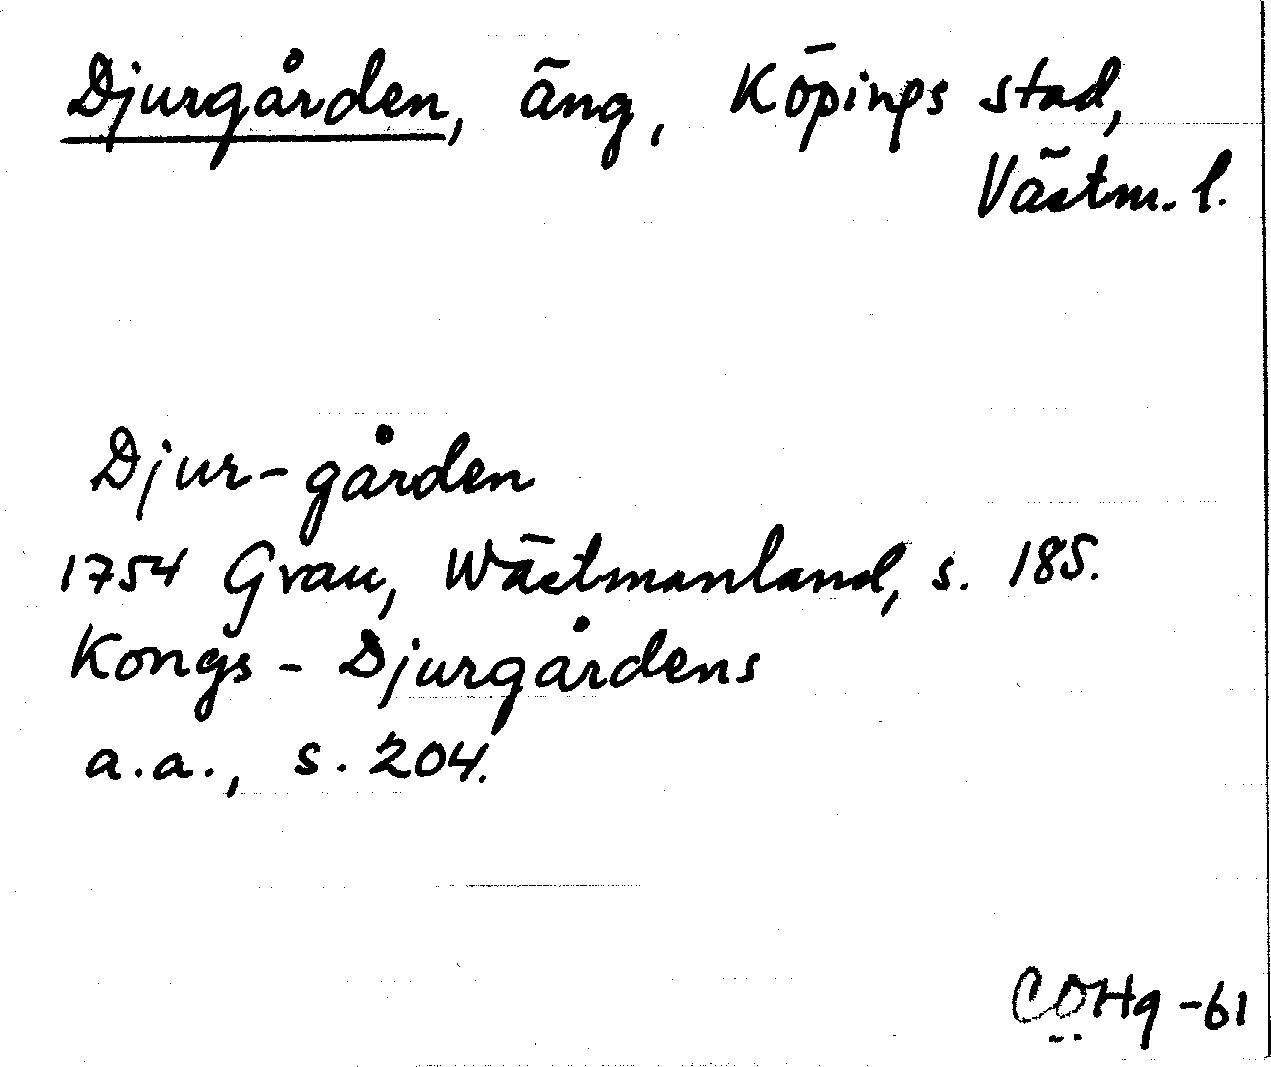 Djurgården, äng, Köpings stad,
Västm. l.
Djur-gården
1754 Grau, Wästmanland, s. 185.
Kongs-Djurgårdens
a.a., s. 204.
COHg -61